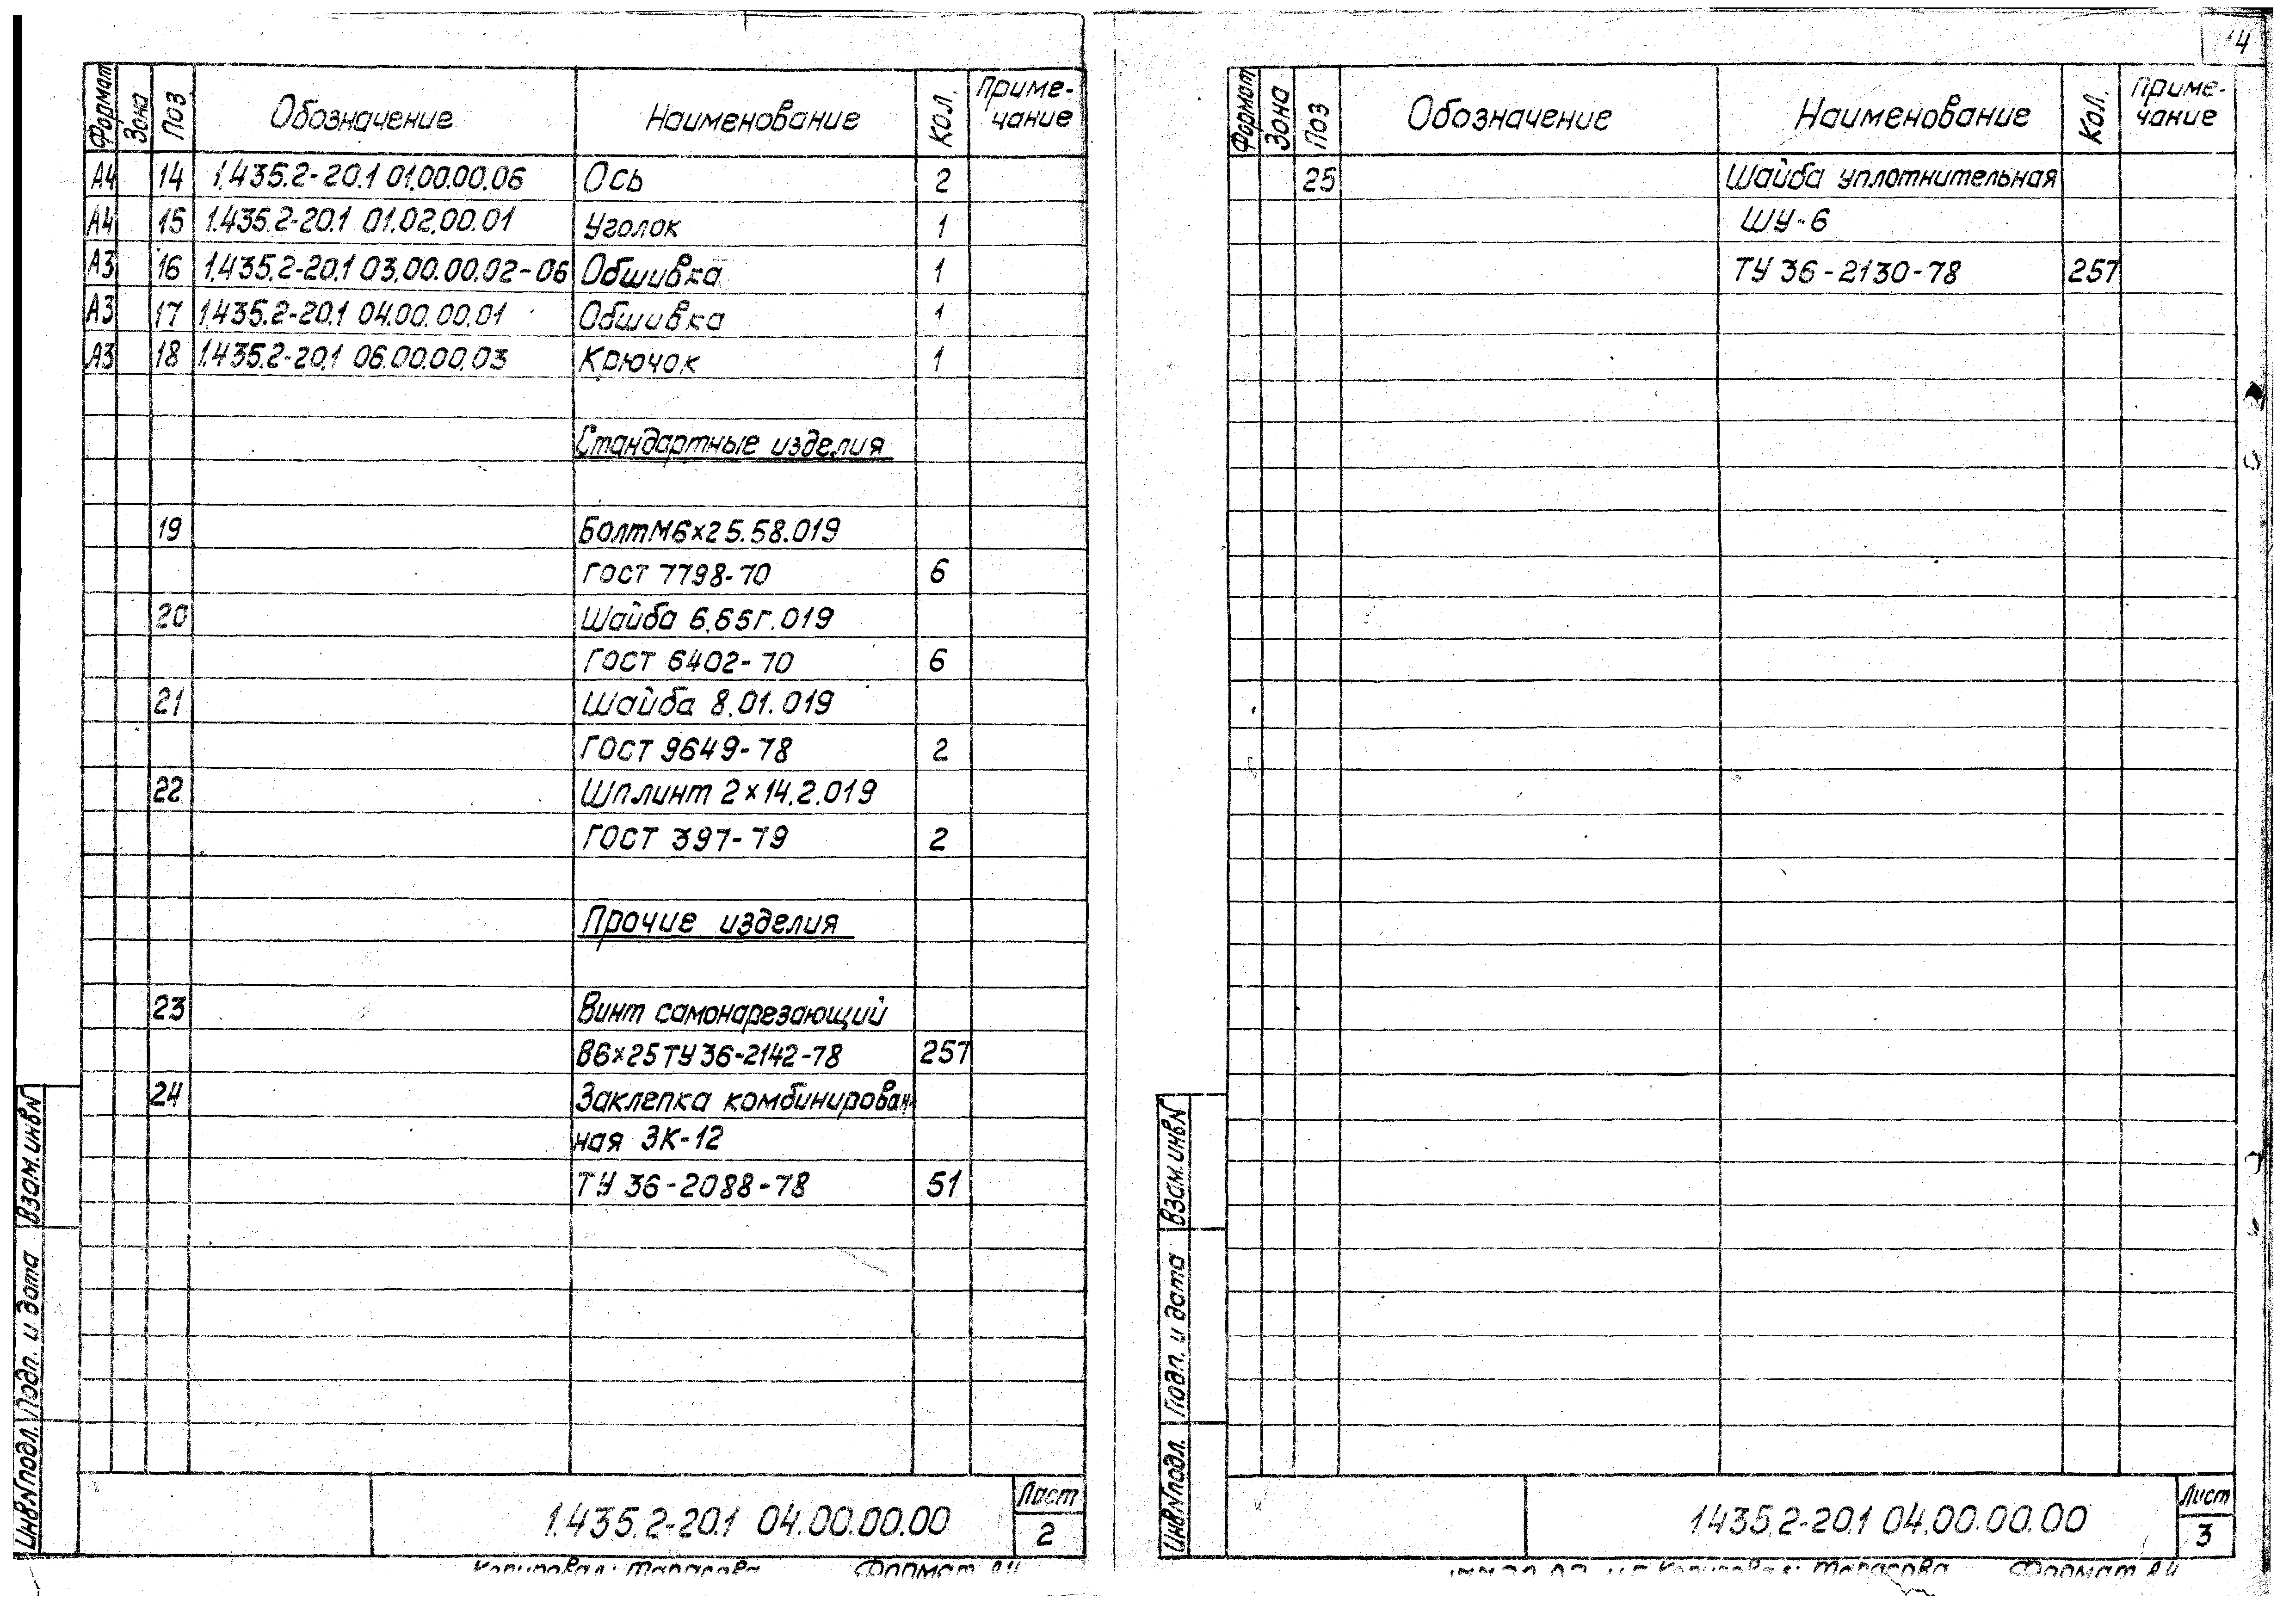 Формат Зона Поз Обозначение Наименование Кол. Приме-
чание
А4 14 1.435.2-20.1 01.00.00.06 Ось 2
А4 15 1.435.2-20.1 01.02.00.01 Уголок 1
А3 16 1.435.2-20.1 03.00.00.02-06 Обшивка 1
А3 17 1.435.2-20.1 04.00.00.01 Обшивка 1
А3 18 1.435.2-20.1 06.00.00.03 Крючок 1
Стандартные изделия
19 Болт М6×25.58.019
ГОСТ 7798-70 6
20 Шайба 6.65Г.019
ГОСТ 6402-70 6
21 Шайба 8.01.019
ГОСТ 9649-78 2
22 Шплинт 2×14.2.019
ГОСТ 397-79 2
Прочие изделия
23 Винт самонарезающий
В6×25 ТУ 36-2142-78 257
24 Заклепка комбинирован-
ная ЗК-12
ТУ 36-2088-78 51
Инв.N подл. Подп. и дата Взам.инв.N
1.435.2-20.1 04.00.00.00 Лист
2
Копировал: Тарасова Формат А4
Формат Зона Поз Обозначение Наименование Кол. Приме-
чание
25 Шайба уплотнительная
ШУ-6
ТУ 36-2130-78 257
Инв.N подл. Подп. и дата Взам.инв.N
1.435.2-20.1 04.00.00.00 Лист
3
Копировал: Тарасова Формат А4